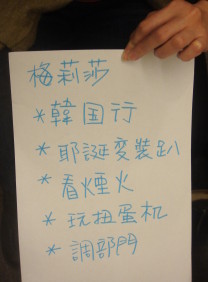 梅莉莎
*韓国行
*耶誕变裝趴
*看煙火
*玩扭蛋机
*調部門